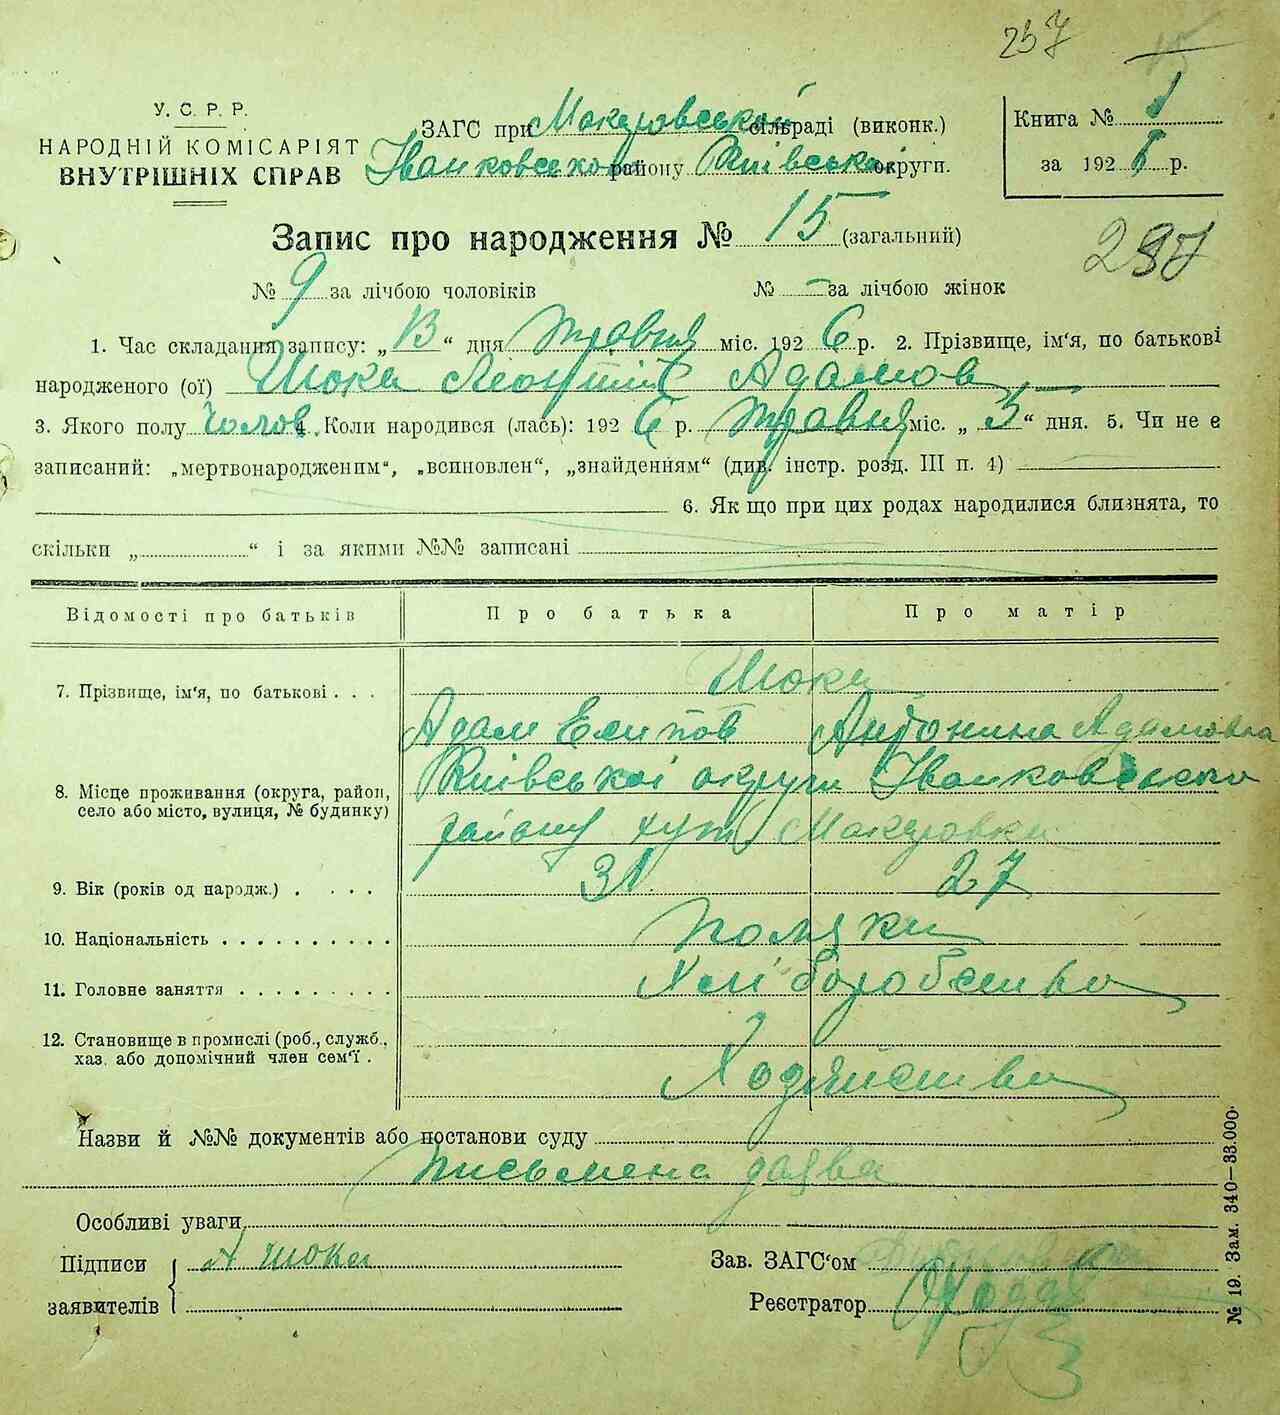 237
15
У. С. Р. Р.
НАРОДНІЙ КОМІСАРІЯТ
ВНУТРІШНІХ СПРАВ
ЗАГС при Макуровській сільраді (виконк.)
Іванковського району Київської округи.
Книга № 1
за 1926 р.
Запис про народження № 15 (загальний)
287
№ 9 за лічбою чоловіків № – за лічбою жінок
1. Час складання запису: „13“ дня травня міс. 1926 р. 2. Прізвище, ім'я, по батькові
народженого (ої) Шока Леонтій Адамов
3. Якого полу Чолов 4. Коли народився (лась): 1926 р. травня міс. „5“ дня. 5. Чи не є
записаний: „мертвонародженим“, „всиновлен“, „знайденням“ (див. інстр. розд. III п. 4)
6. Як що при цих родах народилися близнята, то
скільки „ “ і за якими №№ записані
Відомості про батьків Про батька Про матір
7. Прізвище, ім'я, по батькові . . . Шока
Адам Есипов Антонина Адамовна
8. Місце проживання (округа, район, село або місто, вулиця, № будинку) Київської округи Іванковського
району хут Макуровка
9. Вік (років од народж.) . . . . 31 27
10. Національність . . . . . . . . . . Поляки
11. Головне заняття . . . . . . . . . Хліборобство
12. Становище в промислі (роб., служб., хаз. або допомічний член сем'ї .
Назви й №№ документів або постанови суду
письмена заява
Особливі уваги
Підписи А Шока Зав. ЗАГС'ом
заявителів Реєстратор
№ 19. Зам. 340—33.000.